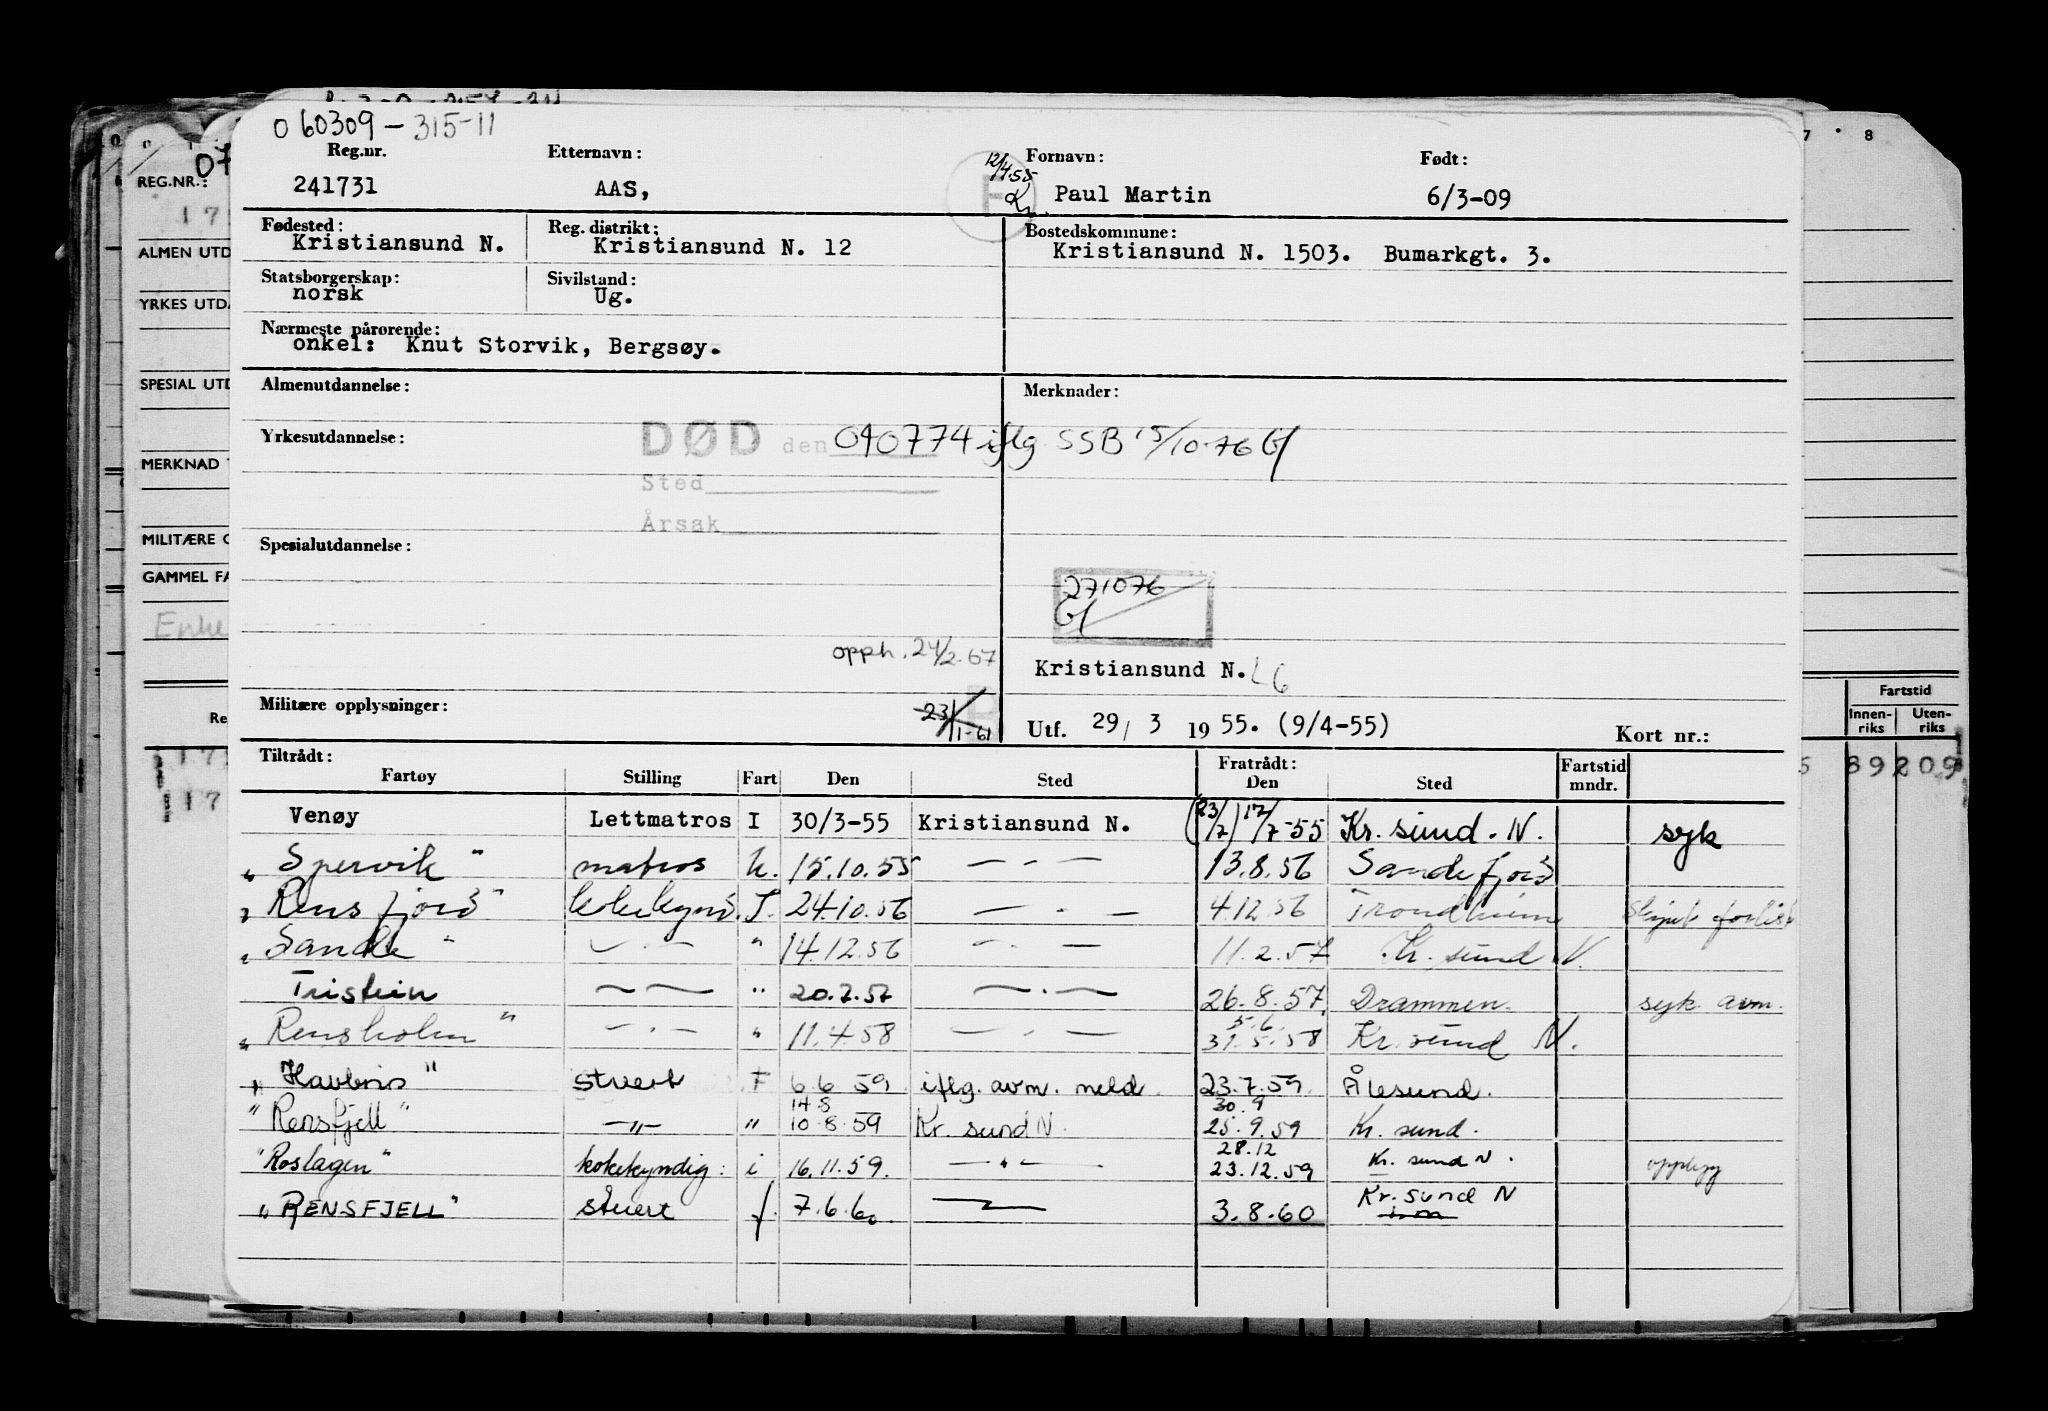 060309-315-11
Reg.nr. Etternavn: Fornavn: Født:
241731 AAS, 12/4.55 Paul Martin 6/3-09
Fødested: Reg. distrikt: Bostedskommune:
Kristiansund N. Kristiansund N. 12 Kristiansund N. 1503. Bumarkgt. 3.
Statsborgerskap: Sivilstand:
norsk Ug.
Nærmeste pårørende:
onkel: Knut Storvik, Bergsøy.
Almenutdannelse: Merknader:
Yrkesutdannelse: DØD den 040774 iflg SSB 15/10-76
Sted
Årsak
Spesialutdannelse:
271076
opph. 24/2-67 Kristiansund N.
Militære opplysninger: 23/1-61 Utf. 29/3 1955. (9/4-55) Kort nr.:
Tiltrådt: Fratrådt: Fartstid
Fartøy Stilling Fart Den Sted Den Sted mndr.
Venøy Lettmatros I 30/3-55 Kristiansund N. (23/7) 17/7-55 Kr.sund. N. syk
"Spervik" matros K. 15.10.55 — . — 13.8.56 Sandefjord
"Rensfjord" kokekynd. I. 24.10.56 — . — 4.12.56 Trondheim Skipet forlist
"Sandla" — . — " 14.12.56 — . — 11.2.57 Kr.sund N.
Tristein — — " 20.7.57 — . — 26.8.57. Drammen. syk avm.
5.6.
"Rensholm" — . — " 11.4.58 — . — 31.5.58 Kr.sund N.
"Havbris" stuert F 6.6.59. iflg. avm. meld. 23.7.59. Ålesund.
14.8 30.9
"Rensfjell" —"— " 10.8.59 Kr.sund N. 25.9.59 Kr.sund.
28.12
"Roslagen" kokekyndig: i 16.11.59. —"— 23.12.59 Kr.sund N. opplegg
"RENSFJELL" stuert f. 7.6.60. — 3.8.60 Kr.sund N
REG.NR.:
ALMEN UTD
YRKES UTD
SPESIAL UTD
MERKNAD
MILITÆRE
GAMMEL
Enke
Re
17
17
7 8
Fartstid
Innen-riks Uten-riks
89 209